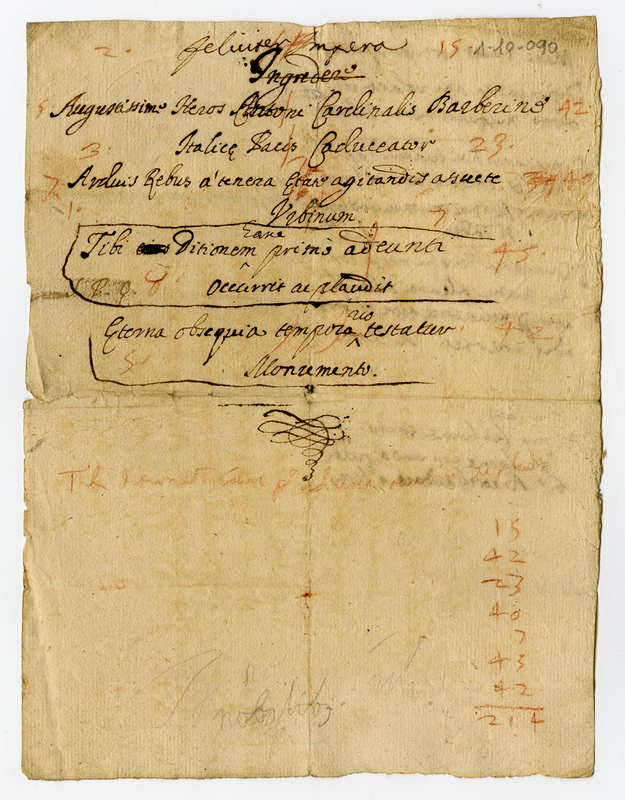 2. feliciter Impera 15. 1-10-090
Ingredere
5 Augustissime Heros Antoni Cardinalis Barberine 42.
3. Italicę Pacis Caduceator 23.
7. Arduis Rebus a' tenera Etate agitandis assuete 40
1. Vrbinum 7
hanc
Tibi Ditionem primò adeunti 45.
8. Occurrit ac plaudit
rio
Eterna obsequia tempora testatur 42
5. Monumento.
Tibi
15
42
23
40
7
45
42
214
nobilib